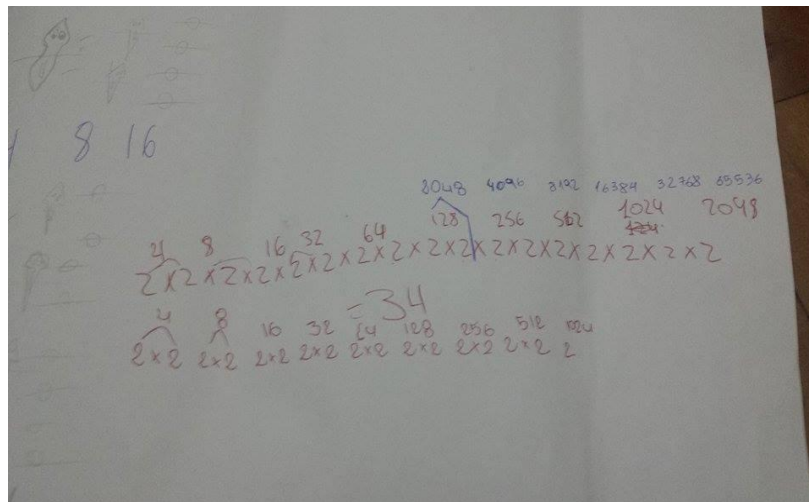 8 16
2048 4096 8192 16384 32768 65536
4 8 16 32 64 128 256 512 1024 2048
2 x 2 x 2 x 2 x 2 x 2 x 2 x 2 x 2 x 2 x 2 x 2 x 2 x 2 x 2 x 2
= 34
4 8 16 32 64 128 256 512 1024
2 x 2 2 x 2 2 x 2 2 x 2 2 x 2 2 x 2 2 x 2 2 x 2 2